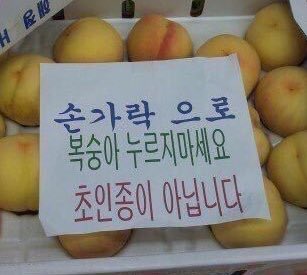 손가락 으로
복숭아 누르지마세요
초인종이 아닙니다